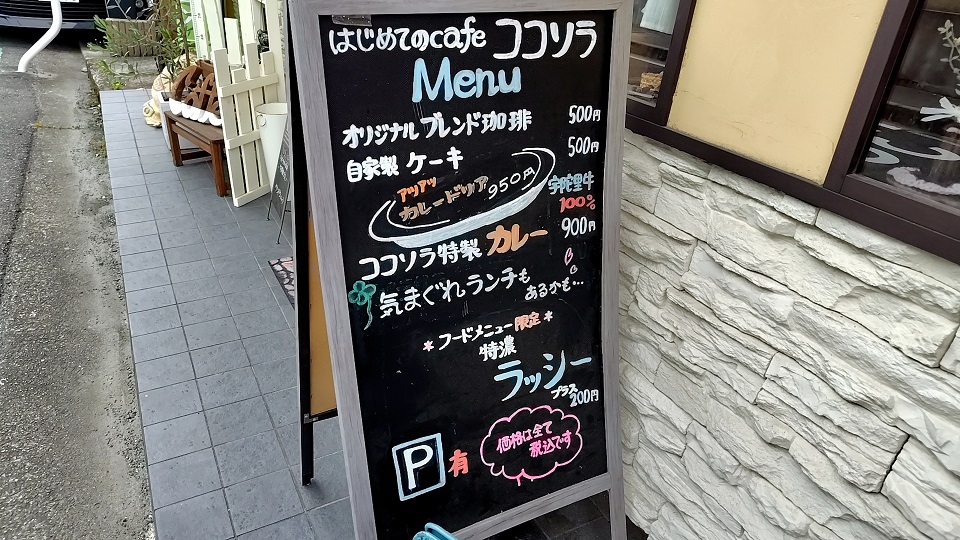 はじめてのcafe ココソラ
Menu
オリジナル ブレンド 珈琲 500円
自家製 ケーキ 500円
アツアツ
カレードリア 950円
宇陀里牛
100%
ココソラ特製 カレー 900円
気まぐれランチも
あるかも…
*フードメニュー限定*
特濃
ラッシー
プラス200円
P 有
価格は全て
税込です